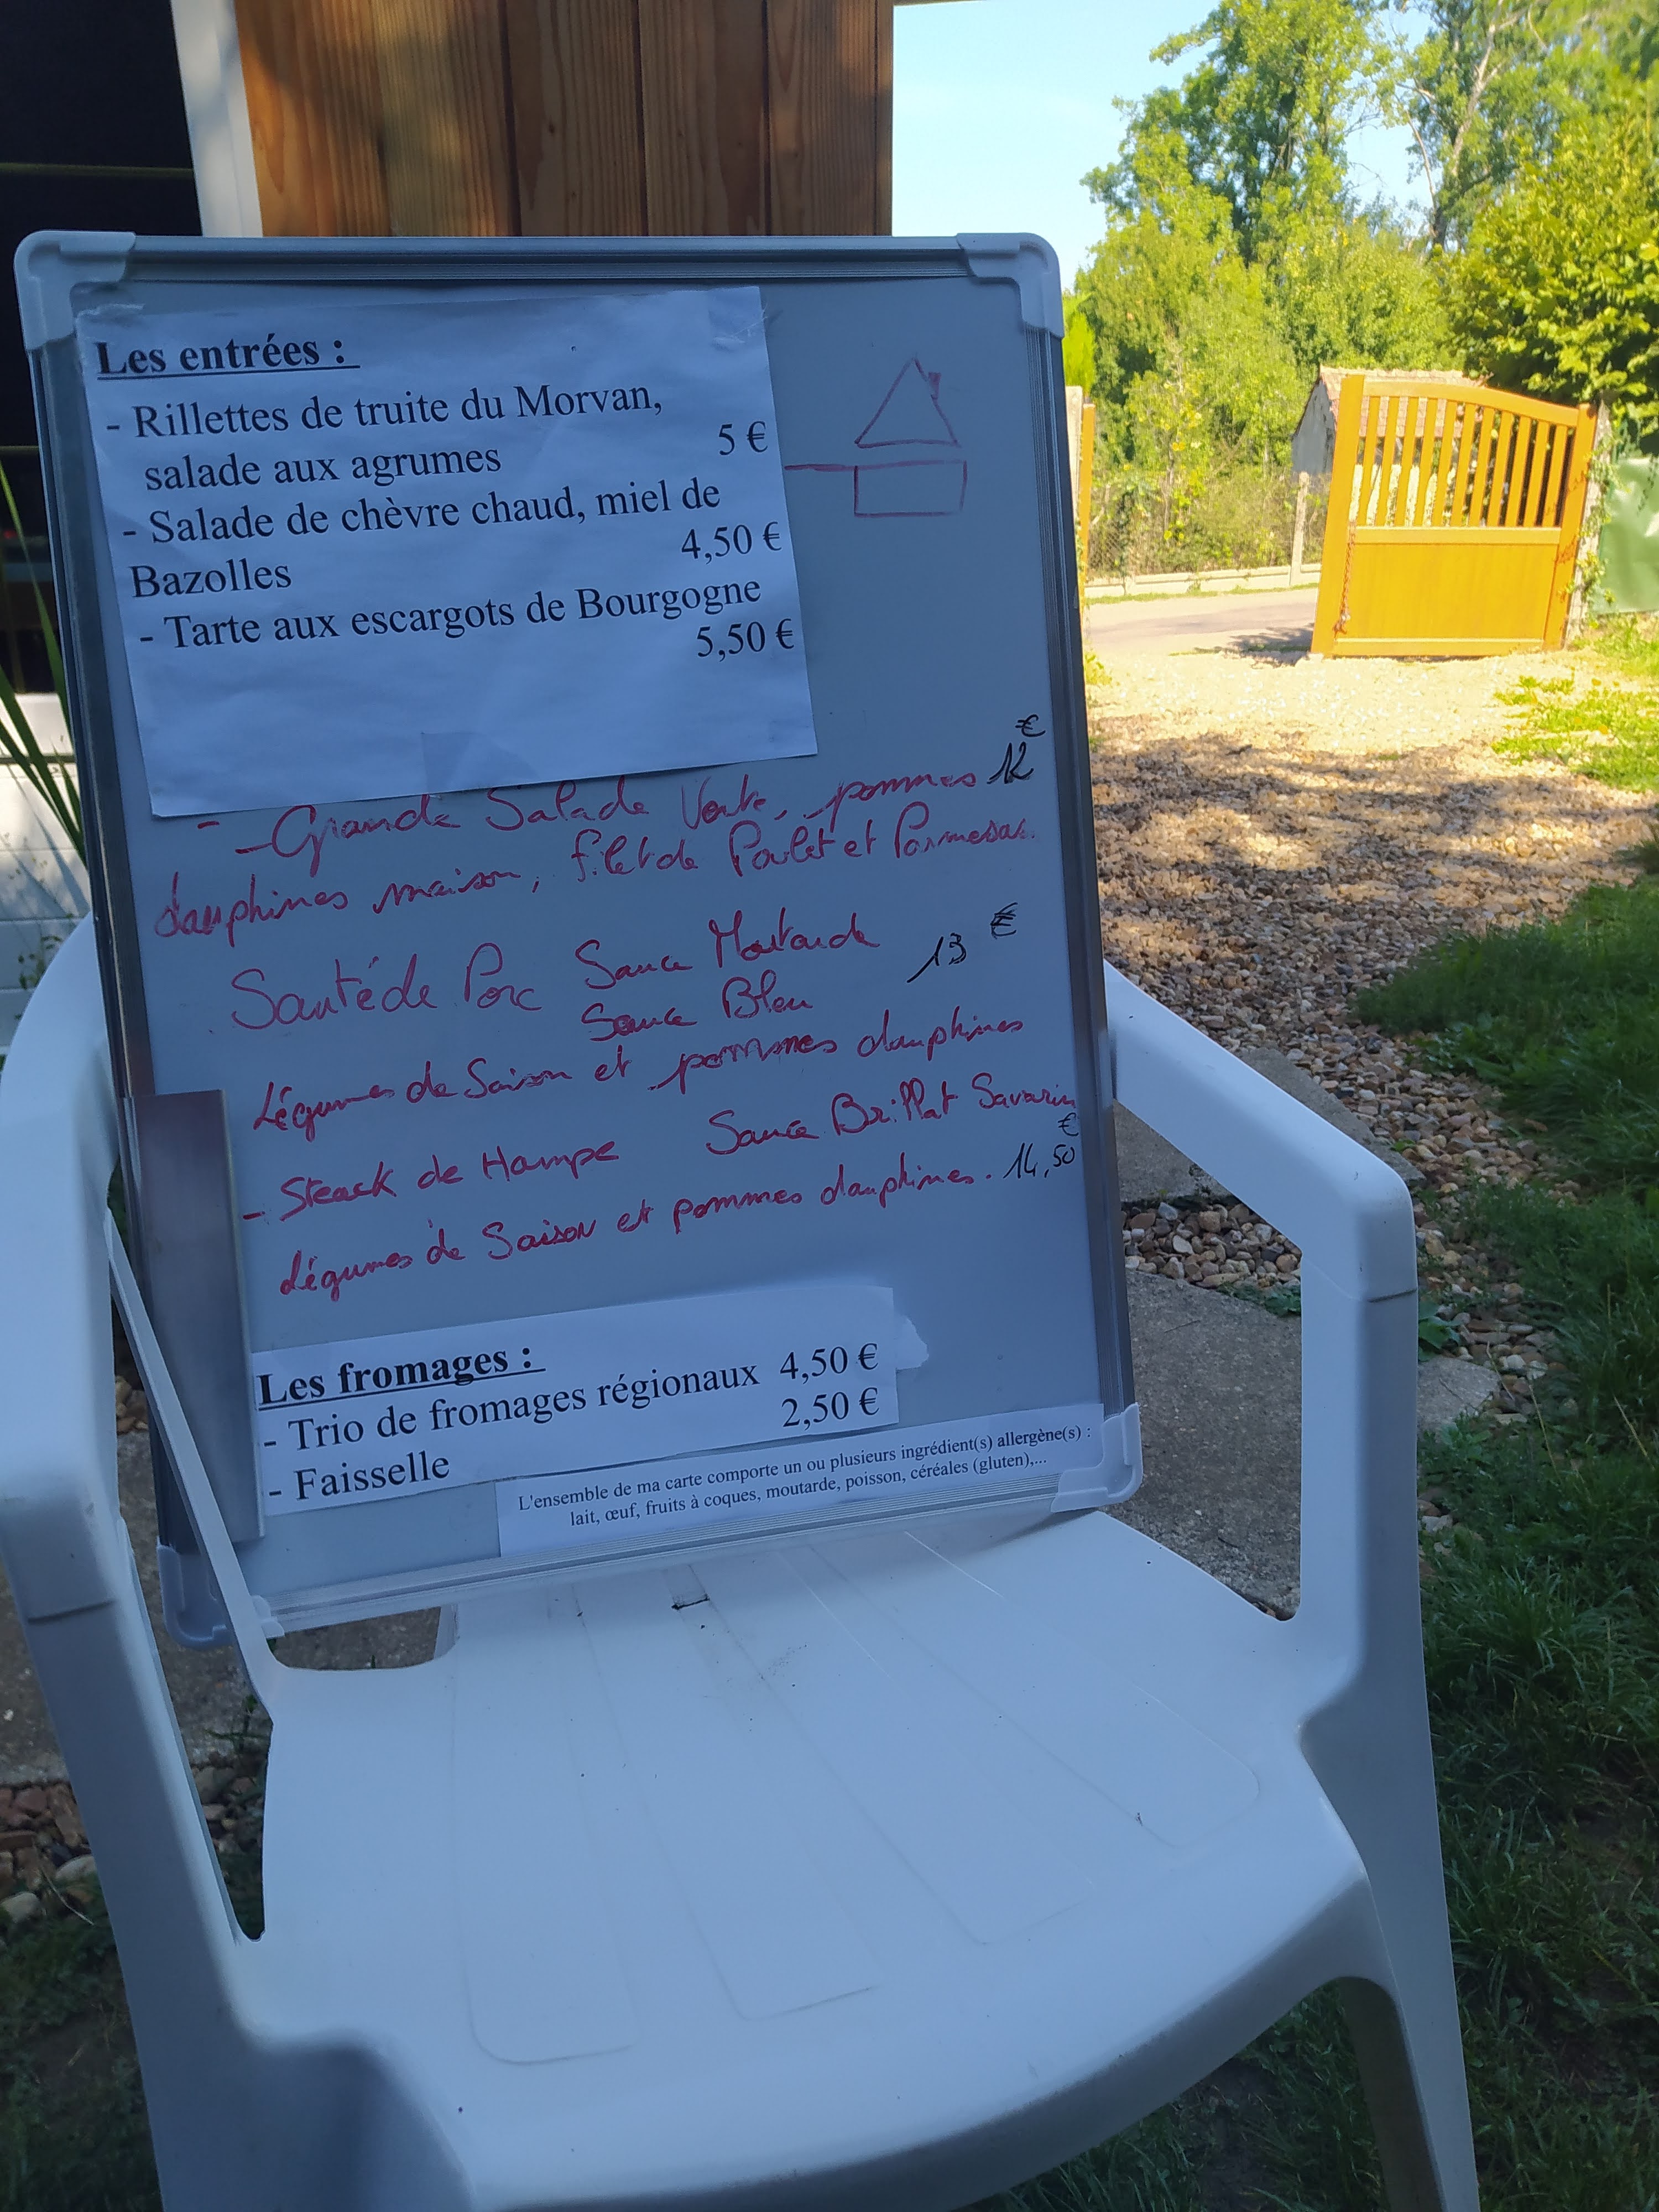 Les entrées :
- Rillettes de truite du Morvan,
salade aux agrumes 5 €
- Salade de chèvre chaud, miel de
Bazolles 4,50 €
- Tarte aux escargots de Bourgogne
5,50 €
- - Grande Salade Verte, pommes 12 €
dauphines maison, filet de Poulet et Parmesan.
Sauté de Porc Sauce Moutarde
Sauce Bleu 13 €
Légumes de Saison et pommes dauphines
- Steack de Hampe Sauce Brillat Savarin
Légumes de Saison et pommes dauphines. 14,50 €
Les fromages :
- Trio de fromages régionaux 4,50 €
- Faisselle 2,50 €
L'ensemble de ma carte comporte un ou plusieurs ingrédient(s) allergène(s) :
lait, œuf, fruits à coques, moutarde, poisson, céréales (gluten),...